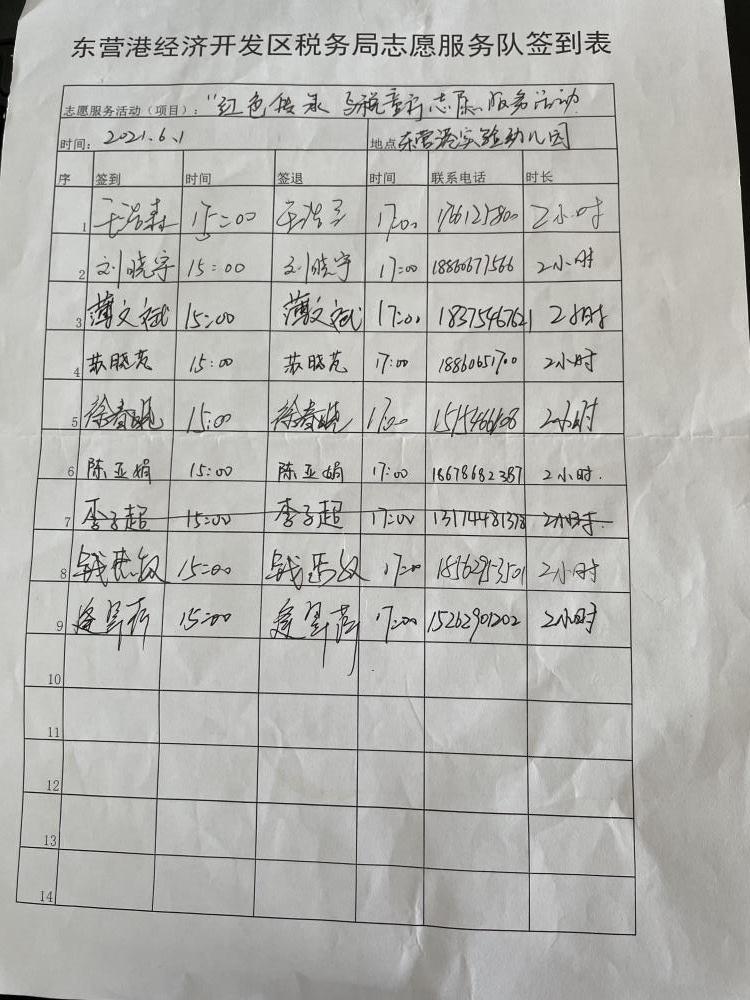 东营港经济开发区税务局志愿服务队签到表
志愿服务活动（项目）："红色传承 与税童行志愿服务活动
时间：2021.6.1 地点 东营港实验幼儿园
序 签到 时间 签退 时间 联系电话 时长
1 15:00 17:00 2小时
2 刘晓宇 15:00 刘晓宇 17:00 18860677566 2小时
3 薄文斌 15:00 薄文斌 17:00 18375467621 2小时
4 苏晓苑 15:00 苏晓苑 17:00 18860651700 2小时
5 徐春晓 15:00 徐春晓 17:00 2小时
6 陈亚娟 15:00 陈亚娟 17:00 18678682387 2小时.
7 李子超 15:00 李子超 17:00 13174481378 2小时.
8 15:00 17:00 18562953501 2小时
9 15:00 17:00 15262901202 2小时
10
11
12
13
14